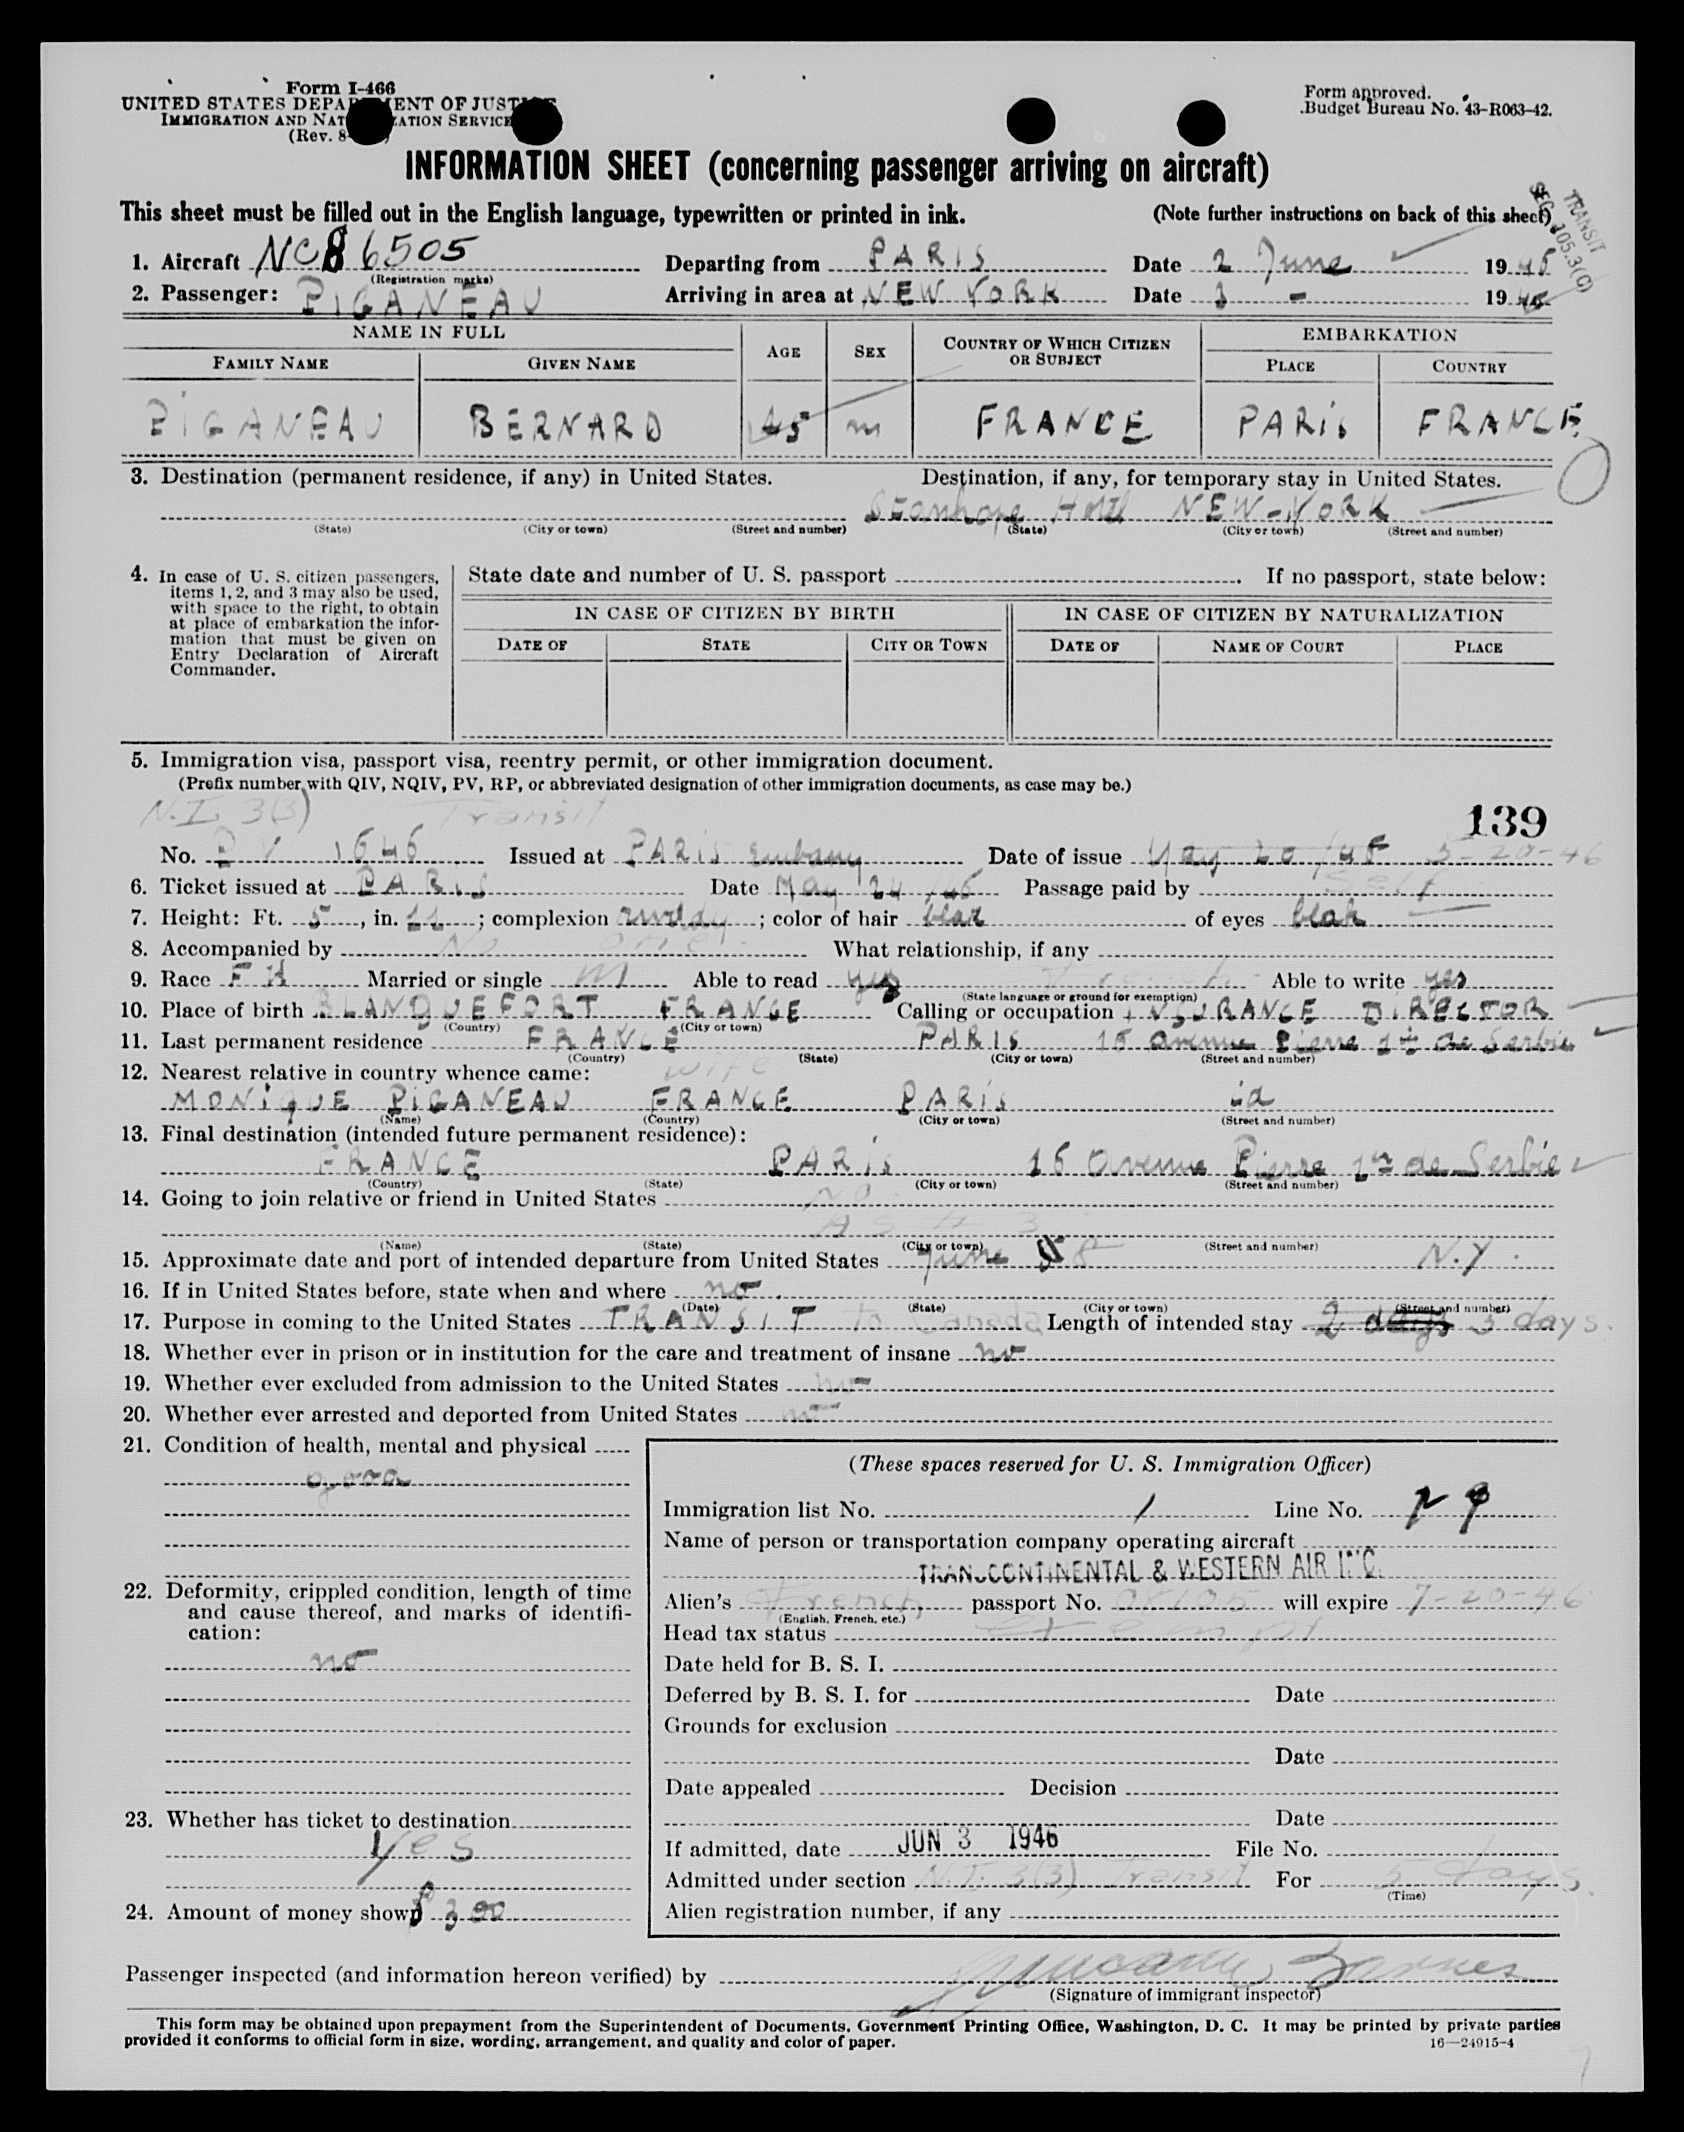 Form I-466
UNITED STATES DEPARTMENT OF JUSTICE
IMMIGRATION AND NATURALIZATION SERVICE
(Rev. 8-
Form approved.
Budget Bureau No. 43-R063-42.
INFORMATION SHEET (concerning passenger arriving on aircraft)
This sheet must be filled out in the English language, typewritten or printed in ink. (Note further instructions on back of this sheet)
TRANSIT
SEC. 105.3(C)
1. Aircraft NC86505 Departing from PARIS Date 2 June 1946
(Registration marks)
2. Passenger: PIGANEAU Arriving in area at NEW YORK Date 3 - 1946
NAME IN FULL AGE SEX COUNTRY OF WHICH CITIZEN OR SUBJECT EMBARKATION
FAMILY NAME GIVEN NAME PLACE COUNTRY
PIGANEAU BERNARD 45 m FRANCE PARIS FRANCE
3. Destination (permanent residence, if any) in United States. Destination, if any, for temporary stay in United States.
Stanhope Hotel NEW-YORK
(State) (City or town) (Street and number) (State) (City or town) (Street and number)
4. In case of U. S. citizen passengers, items 1, 2, and 3 may also be used, with space to the right, to obtain at place of embarkation the information that must be given on Entry Declaration of Aircraft Commander.
State date and number of U. S. passport . If no passport, state below:
IN CASE OF CITIZEN BY BIRTH IN CASE OF CITIZEN BY NATURALIZATION
DATE OF STATE CITY OR TOWN DATE OF NAME OF COURT PLACE
5. Immigration visa, passport visa, reentry permit, or other immigration document.
(Prefix number with QIV, NQIV, PV, RP, or abbreviated designation of other immigration documents, as case may be.)
N.I. 3(3) Transit 139
No. PV 1646 Issued at PARIS Embassy Date of issue May 20 /46 5-20-46
6. Ticket issued at PARIS Date May 24 /46 Passage paid by Self
7. Height: Ft. 5, in. 11; complexion ruddy; color of hair blak of eyes blak
8. Accompanied by No one. What relationship, if any
9. Race FH Married or single M Able to read yes French Able to write yes
(State language or ground for exemption)
10. Place of birth BLANQUEFORT FRANCE Calling or occupation INSURANCE DIRECTOR
(Country) (City or town)
11. Last permanent residence FRANCE PARIS 16 avenue Pierre 1er de Serbie
(Country) (State) (City or town) (Street and number)
12. Nearest relative in country whence came: Wife
MONIQUE PIGANEAU FRANCE PARIS id
(Name) (Country) (City or town) (Street and number)
13. Final destination (intended future permanent residence):
FRANCE PARIS 16 avenue Pierre 1er de Serbie
(Country) (State) (City or town) (Street and number)
14. Going to join relative or friend in United States NO
As # 3
(Name) (State) (City or town) (Street and number)
15. Approximate date and port of intended departure from United States June 8 N.Y.
16. If in United States before, state when and where no
(Date) (State) (City or town) (Street and number)
17. Purpose in coming to the United States TRANSIT to Canada Length of intended stay 2 days 5 days.
18. Whether ever in prison or in institution for the care and treatment of insane no
19. Whether ever excluded from admission to the United States no
20. Whether ever arrested and deported from United States no
21. Condition of health, mental and physical
good
22. Deformity, crippled condition, length of time and cause thereof, and marks of identification:
no
23. Whether has ticket to destination
Yes
24. Amount of money shown $ 300
(These spaces reserved for U. S. Immigration Officer)
Immigration list No. 1 Line No. 29
Name of person or transportation company operating aircraft
TRANSCONTINENTAL & WESTERN AIR INC.
Alien's French passport No. will expire 7-20-46
(English, French, etc.)
Head tax status exempt
Date held for B. S. I.
Deferred by B. S. I. for Date
Grounds for exclusion
Date
Date appealed Decision
Date
If admitted, date JUN 3 1946 File No.
Admitted under section N.I. 3(3) Transit For 5 days.
(Time)
Alien registration number, if any
Passenger inspected (and information hereon verified) by Barnes
(Signature of immigrant inspector)
This form may be obtained upon prepayment from the Superintendent of Documents, Government Printing Office, Washington, D. C. It may be printed by private parties
provided it conforms to official form in size, wording, arrangement, and quality and color of paper. 16—24915-4